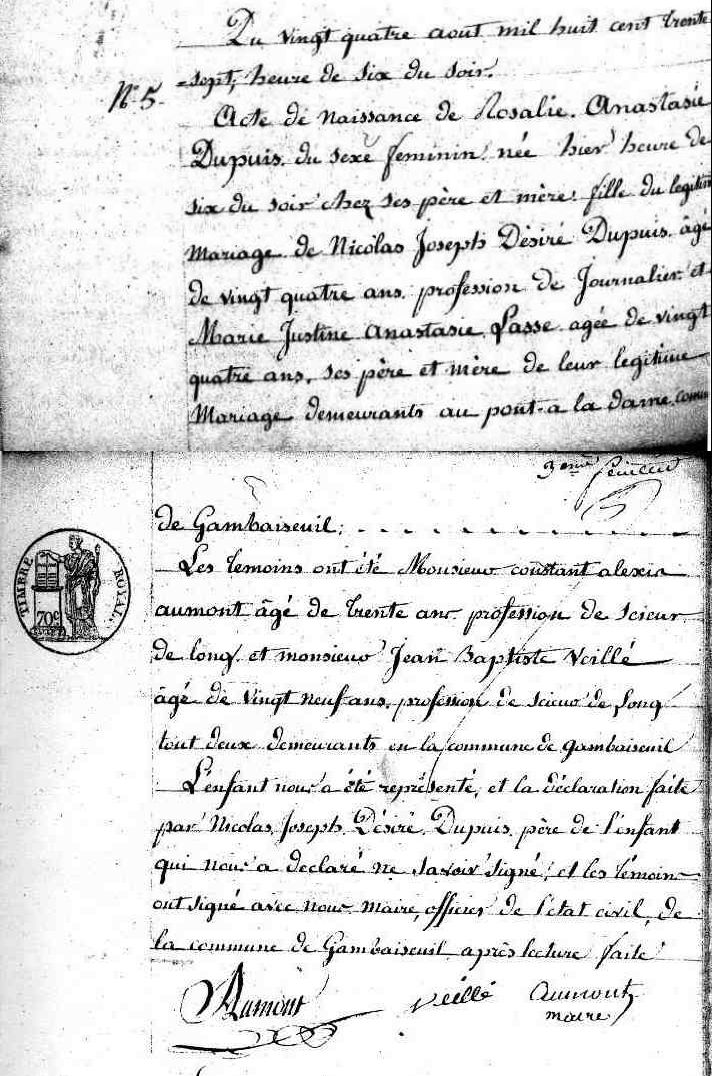 Du vingt quatre aout mil huit cent trente
=sept, heure de six du soir.
N° 5.
Acte de naissance de Rosalie. Anastasie
Dupuis. du sexe feminin. née hier heure de
six du soir chez ses père et mère. fille du legitime
mariage de Nicolas Joseph Désiré Dupuis. âgé
de vingt quatre ans. profession de Journalier et
Marie Justine Anastasie Lasse. agée de vingt
quatre ans. ses père et mère de leur legitime
Mariage demeurants au pont-a la dame commune
3eme feuillet
de Gambaiseuil; . . . . . . . . . .
Les temoins ont été Monsieur constant alexis
aumont âgé de trente ans. profession de scieur
de long. et monsieur Jean Baptiste Veillé
âgé de vingt neuf ans. profession de scieur de long
tout deux demeurants en la commune de gambaiseuil
L'enfant nous a été représenté, et la déclaration faite
par Nicolas, Joseph, Désiré, Dupuis, père de l'enfant
qui nous a declaré ne savoir signé; et les témoins
ont signé avec nous maire, officier de l'état civil, de
la commune de Gambaiseuil après lecture faite
Aumont Veillé Aumont
maire
TIMBRE ROYAL.
70c